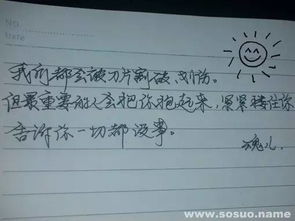 NO.
DATE
我们都会被刀片割破、划伤。
但最重要的人会把你抱起来，紧紧搂住你
告诉你一切都没事。
魂儿.
www.sosuo.name